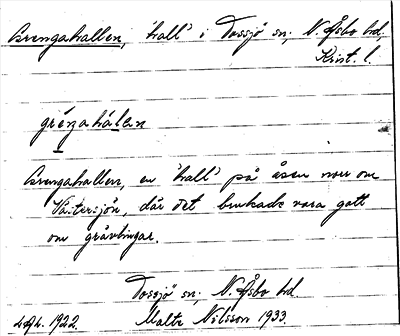 Grengahallen, 'hall' i Tossjö sn, N. Åsbo hd.
Krist. l.
gréngahálen
Grengahallen, en 'hall' på åsen norr om
Västersjön, där det brukade vara gott
om grävlingar.
Tossjö sn, N. Åsbo hd.
1922. Malte Nilsson 1933